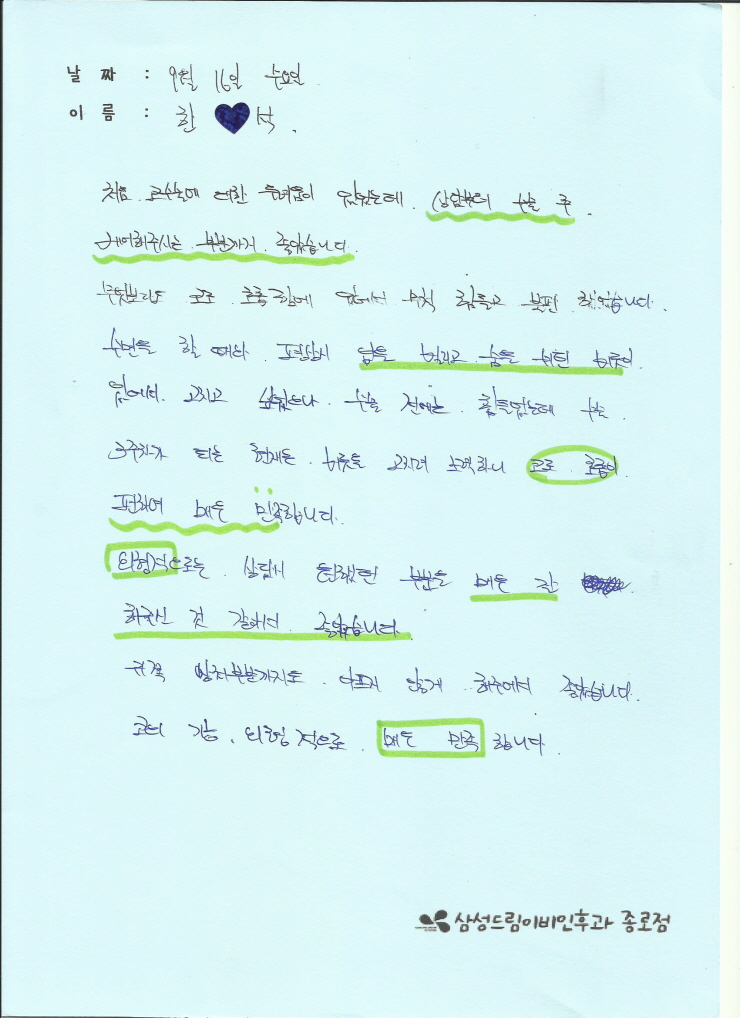 날 짜 : 9월 16일 수요일
이 름 : 한 ♥ 석.
처음 코수술에 대한 두려움이 있었는데. 상담부터 수술 후
케어해주시는 부분까지 좋았습니다.
무엇보다도 코로 호흡함에 있어서 힘들고 불편 했었습니다.
수면을 할 때나 평상시 입을 벌리고 숨을 쉬던 버릇이
있어서 고치고 싶었으나 수술 전에는 힘들었는데 수술
3주차가 되는 현재는 버릇을 고치려 노력하니 코로 호흡이
편하여 매우 만족합니다.
외형적으로는 살짝 휘었던 부분을 매우 잘
해주신 것 같아서 좋았습니다.
귀쪽 부분까지도 아프지 않게 해주셔서 좋았습니다.
코의 기능, 외형적으로 매우 만족 합니다.
삼성드림이비인후과 종로점